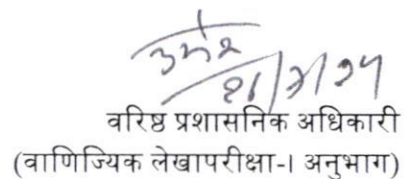 वरिष्ठ प्रशासनिक अधिकारी
(वाणिज्यिक लेखापरीक्षा-I अनुभाग)